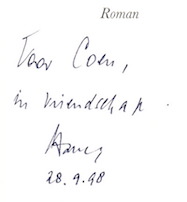 Roman
Voor Coen,
in vriendschap.
28.9.98